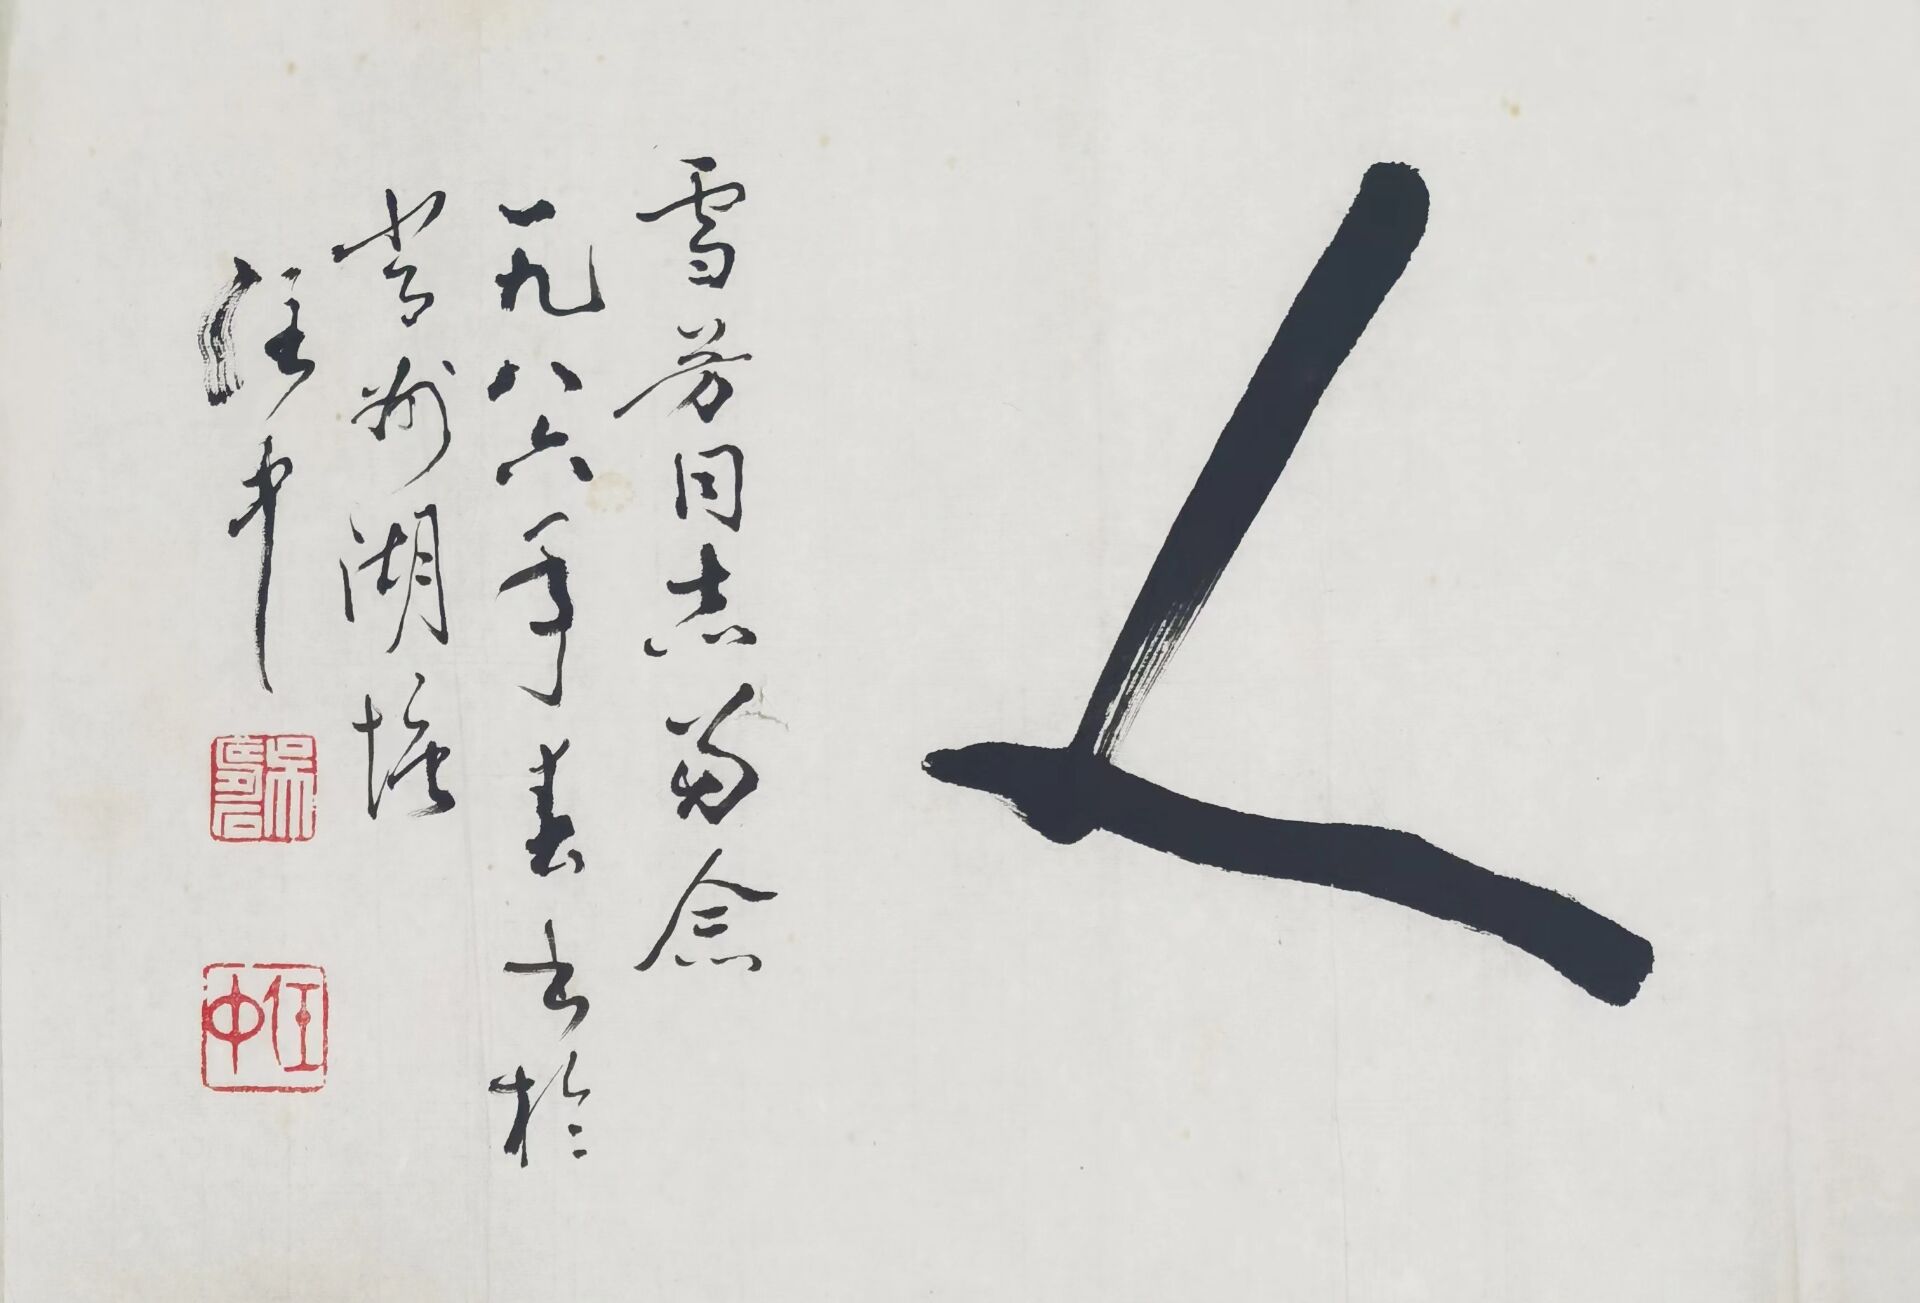 人
雪芳同志留念
一九八六年春书於
常州湖塘
任中
任中